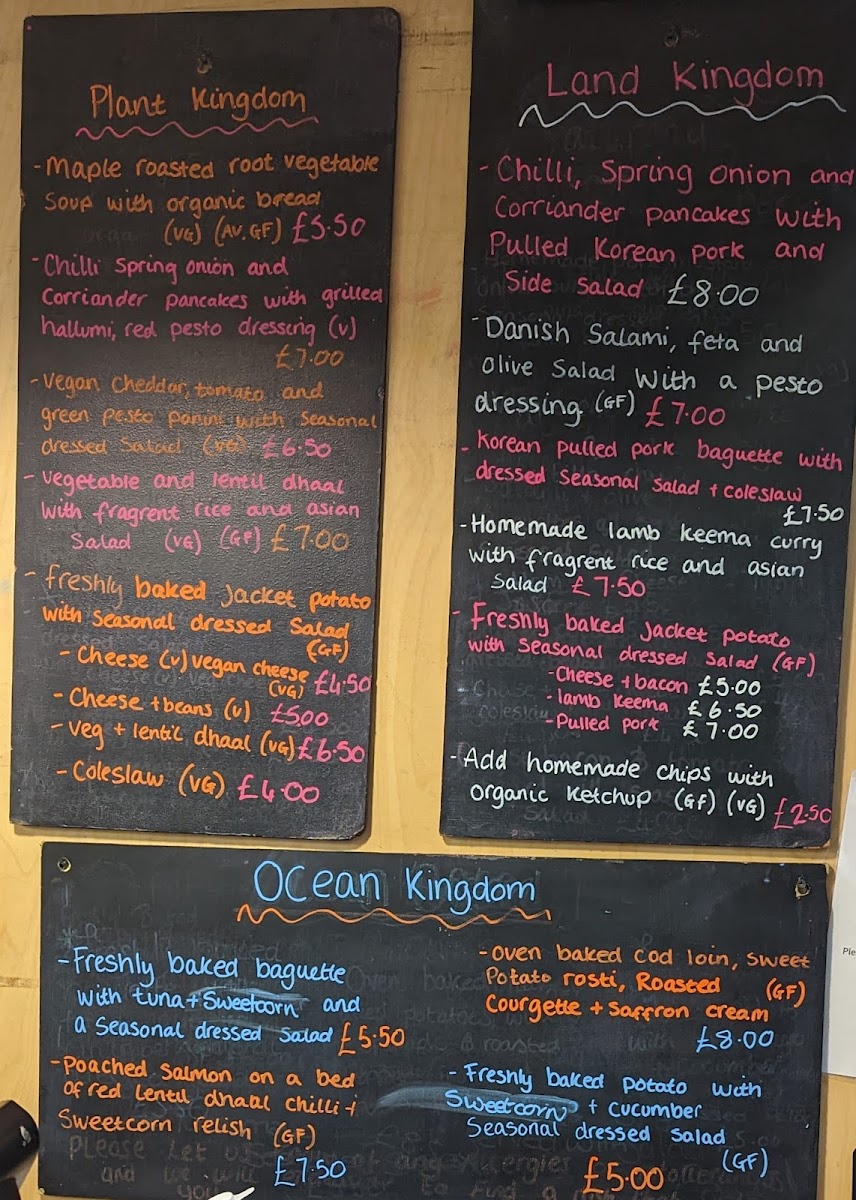 Plant Kingdom
- Maple roasted root vegetable
Soup with organic bread
(VG) (AV.GF) £5.50
- Chilli Spring onion and
Corriander pancakes with grilled
hallumi, red pesto dressing (V)
£7.00
- Vegan Cheddar, tomato and
green pesto panini with Seasonal
dressed Salad (VG) £6.50
- Vegetable and lentil dhaal
with fragrent rice and asian
Salad (VG) (GF) £7.00
- freshly baked Jacket potato
with seasonal dressed Salad
(GF)
- Cheese (V) vegan cheese
(VG) £4.50
- Cheese + beans (V) £5.00
- Veg + lentil dhaal (VG) £6.50
- Coleslaw (VG) £4.00
Land Kingdom
- Chilli, Spring onion and
Corriander pancakes with
Pulled Korean pork and
Side Salad £8.00
- Danish Salami, feta and
olive Salad with a pesto
dressing (GF) £7.00
- Korean pulled pork baguette with
dressed seasonal salad + coleslaw
£7.50
- Homemade lamb keema curry
with fragrent rice and asian
Salad £7.50
- Freshly baked Jacket potato
with seasonal dressed salad (GF)
- Cheese + bacon £5.00
- lamb keema £6.50
- Pulled pork £7.00
- Add homemade chips with
organic Ketchup (GF) (VG) £2.50
Ocean Kingdom
- Freshly baked baguette
with tuna + Sweetcorn and
a Seasonal dressed Salad £5.50
- Poached Salmon on a bed
of red lentil dhaal chilli +
Sweetcorn relish (GF)
£7.50
- Oven baked Cod loin, Sweet
Potato rosti, Roasted (GF)
Courgette + Saffron cream
£8.00
- Freshly baked Potato with
Sweetcorn + cucumber
Seasonal dressed salad
(GF)
£5.00
Please Let us
and we will
you
Ple